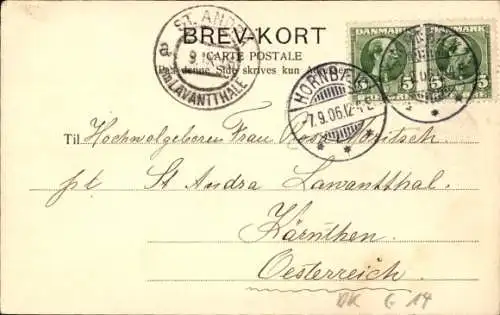 BREV-KORT
CARTE POSTALE
denne Side skrives kun
ST. ANDRÄ
LAVANTTHALE
9.
DANMARK
5
5
HORNBÆK
7.9.06.12-4E
Til Hochwolgeboren Frau
St Andrä Lawantthal.
Kärnthen.
Oesterreich.
DK G 14